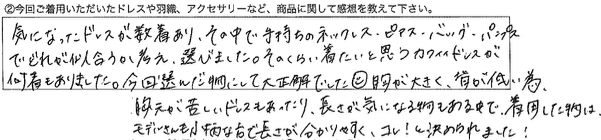 ②今回ご着用いただいたドレスや羽織、アクセサリーなど、商品に関して感想を教えて下さい。
気になったドレスが数着あり、その中で手持ちのネックレス・ピアス・バッグ・パンプス
でどれが似合うか考え、選びました。そのくらい着たいと思うカワイイドレスが
何着もありました。今回選んだ物にして大正解でした☺胸が大きく、背が低い為、
胸元が苦しいドレスもあったり、長さが気になる物もある中で、着用した物は、
モデルさんも小柄な方で長さが分かりやすく、コレ!と決められました!